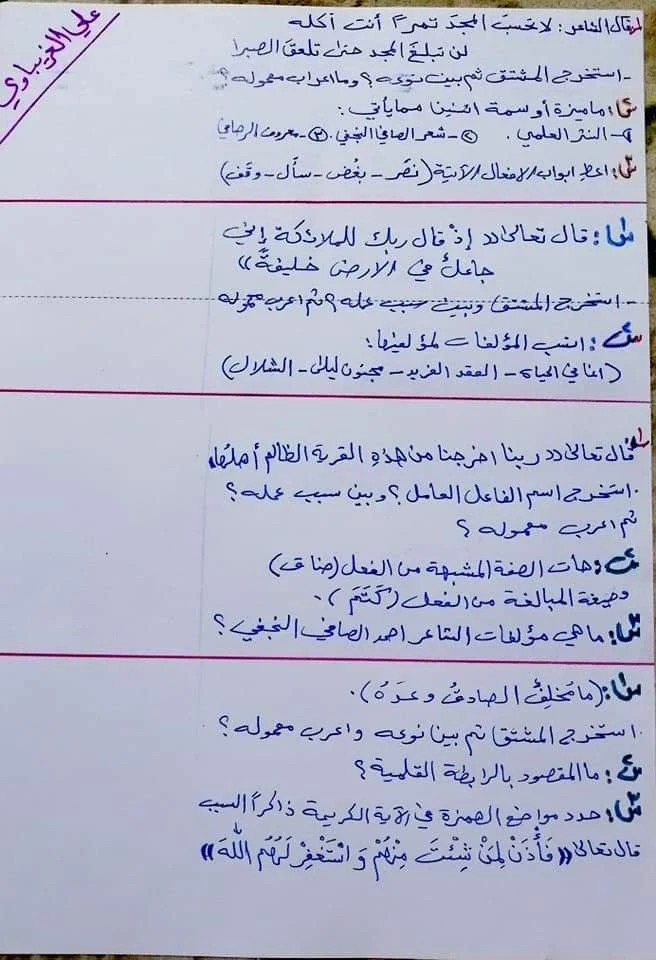 علي الغزيباوي
س١/ قال الشاعر: لا تحسبَ المجدَ تمراً أنت آكله
لن تبلغَ المجد حتى تلعقَ الصبرا
- استخرجي المشتق ثم بين نوعه؟ وما اعراب معموله؟
س٢/ ما ميزة أو سمة اثنين مما يأتي:
١- النثر العلمي. ٢- شعر الصافي النجفي. ٣- معروف الرصافي
س٣/ اعطِ ابواب الافعال الآتية (نصَر - بغُض - سأل - وقَف)
س١: قال تعالى (( إذْ قال ربك للملائكة إني
جاعلٌ في الارض خليفةً ))
- استخرجي المشتق وبين سبب عمله؟ ثم اعرب معموله
س٢: انسب المؤلفات لمؤلفيها:
(اغاني الحياة - العقد الفريد - مجنون ليلى - الشلال)
س١/ قال تعالى (( ربنا اخرجنا من هذهِ القرية الظالم أهلها
. استخرجي اسم الفاعل العامل؟ وبين سبب عمله؟
ثم اعرب معموله؟
س٢: هات الصفة المشبهة من الفعل (ضاق)
وصيغة المبالغة من الفعل (كَتَمَ).
س٣: ما هي مؤلفات الشاعر احمد الصافي النجفي؟
س١: (ما مُخلِفٌ الصادقُ وعدَهُ).
. استخرجي المشتق ثم بين نوعه واعرب معموله؟
س٢: ما المقصود بالرابطة القلمية؟
س٣: حدد مواضع الهمزة في الآية الكريمة ذاكراً السبب
قال تعالى (( فَأْذَنْ لِمَنْ شِئْتَ مِنْهُمْ وَاسْتَغْفِرْ لَهُمُ اللَّهَ ))